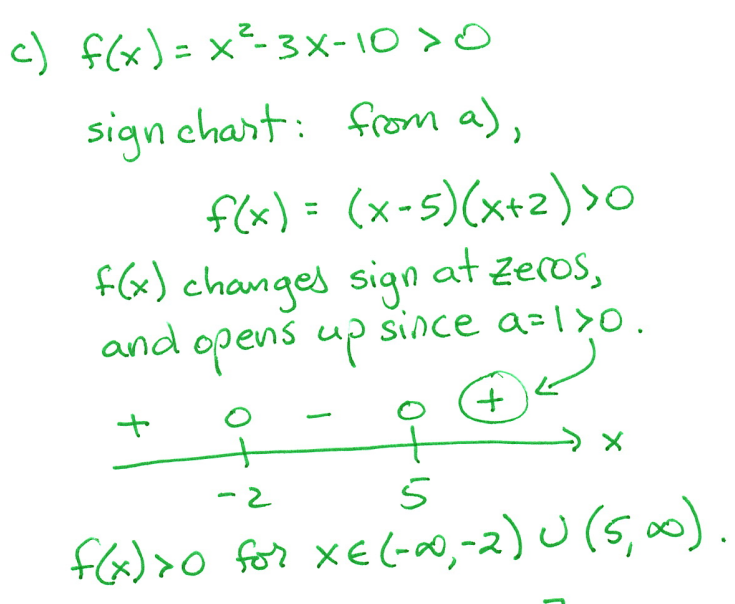 c) f(x) = x²-3x-10 > 0
sign chart: from a),
f(x) = (x-5)(x+2) > 0
f(x) changes sign at zeros,
and opens up since a=1>0.
+ 0 - 0 +
x
-2 5
f(x)>0 for x∈(-∞,-2) ∪ (5,∞).